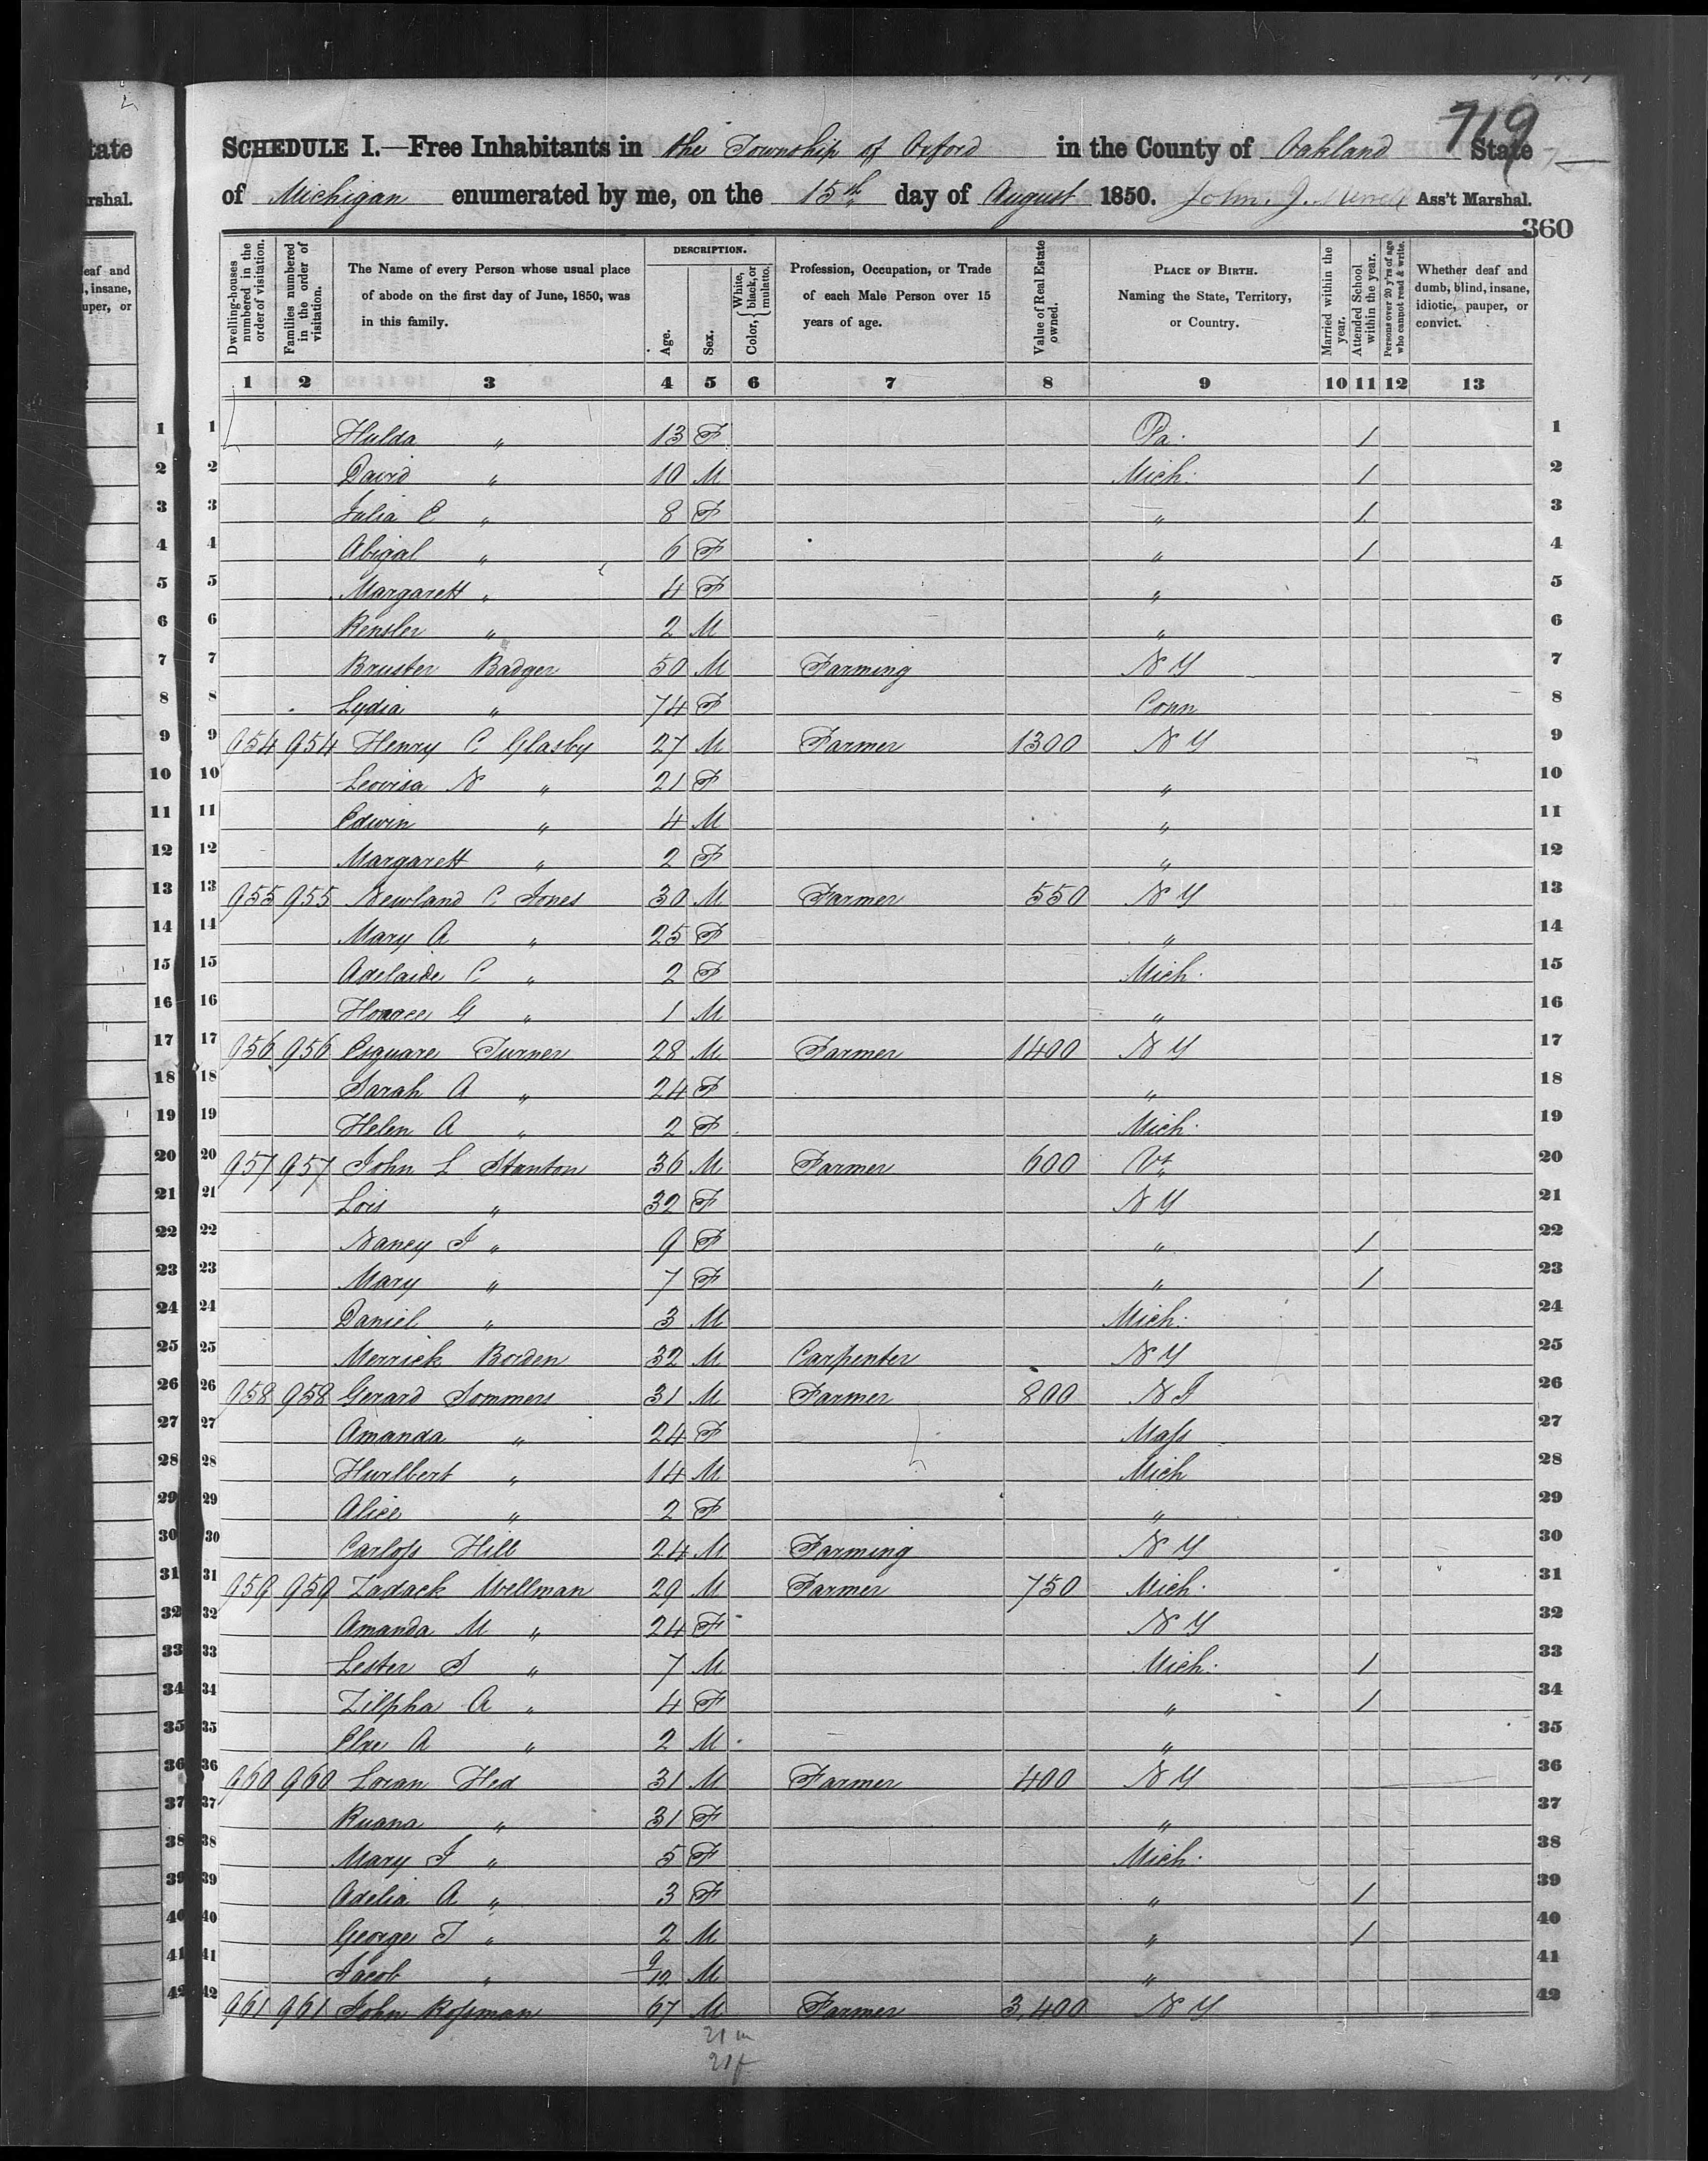 719
SCHEDULE I.—Free Inhabitants in the Township of Oxford in the County of Oakland State
of Michigan enumerated by me, on the 15th day of August 1850. John. J. Ass't Marshal.
360
Dwelling-houses numbered in the order of visitation. Families numbered in the order of visitation. The Name of every Person whose usual place of abode on the first day of June, 1850, was in this family. DESCRIPTION. Age. Sex. Color, { White, black, or mulatto. Profession, Occupation, or Trade of each Male Person over 15 years of age. Value of Real Estate owned. PLACE OF BIRTH. Naming the State, Territory, or Country. Married within the year. Attended School within the year. Persons over 20 y'rs of age who cannot read & write. Whether deaf and dumb, blind, insane, idiotic, pauper, or convict.
1 2 3 4 5 6 7 8 9 10 11 12 13
1 Hulda " 13 F Pa. 1 1
2 David " 10 M Mich. 1 2
3 Julia E " 8 F " 1 3
4 Abigal " 6 F " 1 4
5 Margarett " 4 F " 5
6 Rensler " 2 M " 6
7 Bruster Badger 50 M Farming N Y 7
8 Lydia " 74 F Conn 8
9 954 954 Henry C Glasby 27 M Farmer 1300 N Y 9
10 Lovisa N " 21 F " 10
11 Edwin " 4 M " 11
12 Margarett " 2 F " 12
13 955 955 Newland C Jones 30 M Farmer 550 N Y 13
14 Mary A " 25 F " 14
15 Adelaide C " 2 F Mich. 15
16 Horace G " 1 M " 16
17 956 956 Esquare Turner 28 M Farmer 1400 N Y 17
18 Sarah A " 24 F " 18
19 Helen A " 2 F Mich. 19
20 957 957 John L Stanton 36 M Farmer 600 Vt 20
21 Lois " 32 F N Y 21
22 Nancy J " 9 F " 1 22
23 Mary " 7 F " 1 23
24 Daniel " 3 M Mich. 24
25 Merrick Borden 32 M Carpenter N Y 25
26 958 958 Gerard Sommers 31 M Farmer 800 N J 26
27 Amanda " 24 F Mass 27
28 Hurlbert " 14 M Mich 28
29 Alice " 2 F " 29
30 Carloss Hill 24 M Farming N Y 30
31 959 959 Zadack Wellman 29 M Farmer 750 Mich. 31
32 Amanda M " 24 F N Y 32
33 Lester S " 7 M Mich. 1 33
34 Zilpha A " 4 F " 1 34
35 A " 2 M " 35
36 960 960 Loran Hed 31 M Farmer 400 N Y 36
37 Ruana " 31 F " 37
38 Mary J " 5 F Mich. 38
39 Adelia A " 3 F " 1 39
40 George T " 2 M " 1 40
41 Jacob " 9/12 M " 41
42 961 961 John Rossman 67 M Farmer 3,400 N Y 42
21 m
21 f